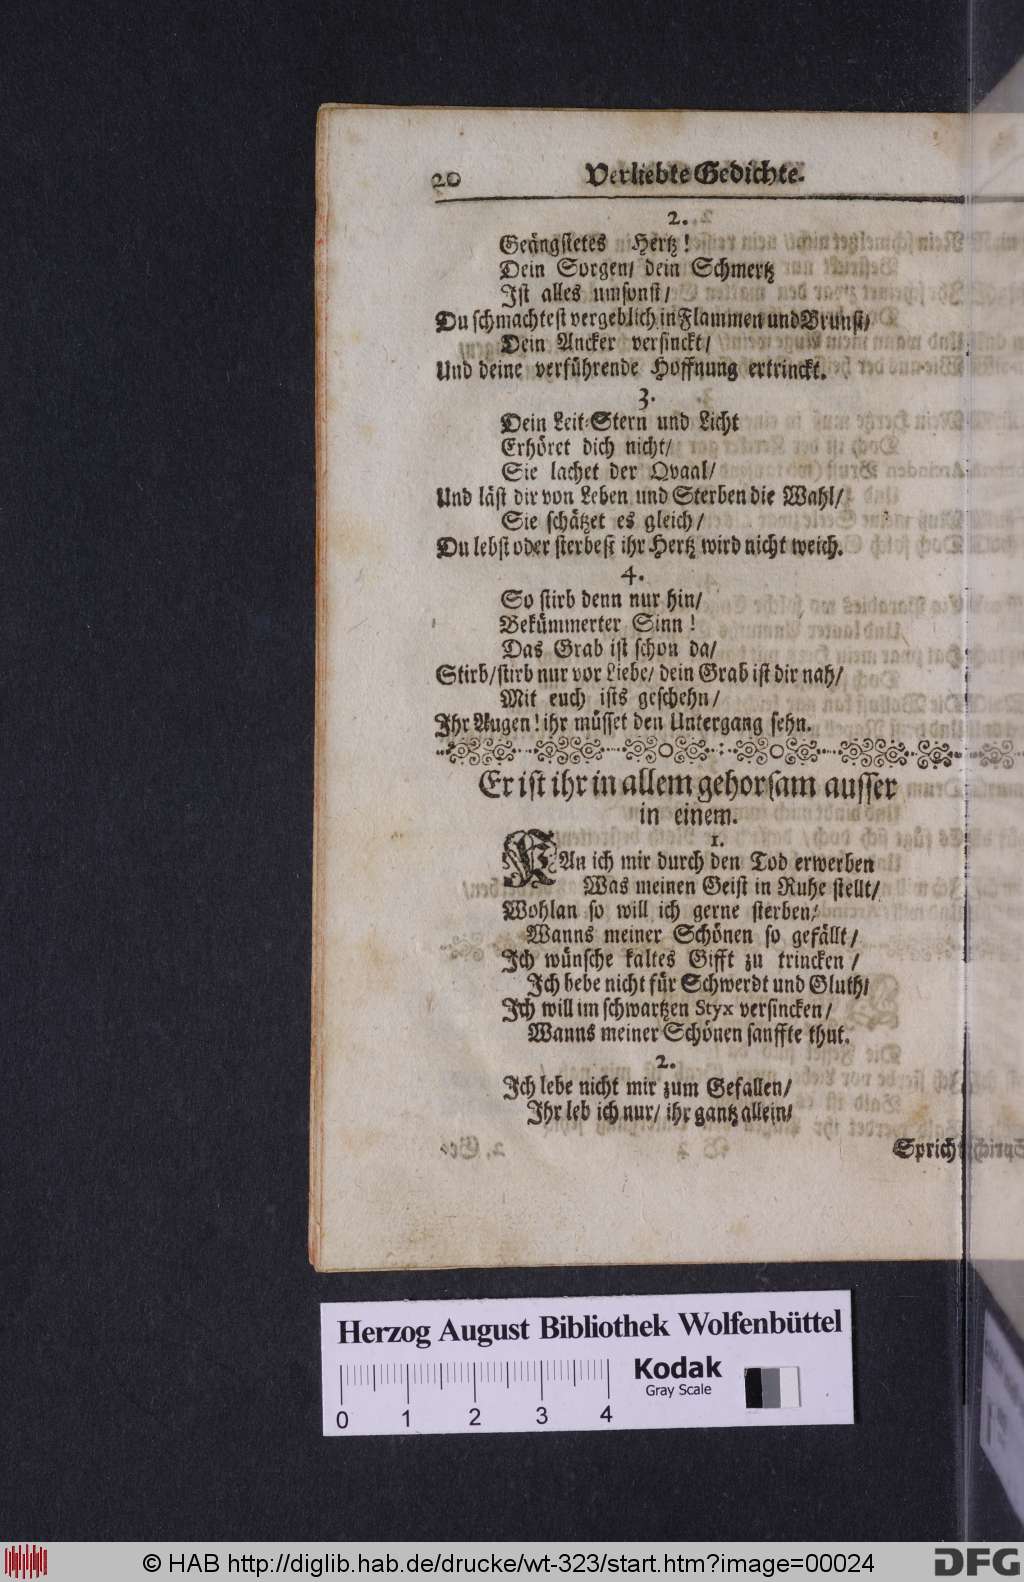 20 Verliebte Gedichte.
2.
Geängstetes Hertz!
Dein Sorgen/ dein Schmertz
Ist alles umsonst/
Du schmachtest vergeblich in Flammen und Brunst/
Dein Ancker versinckt/
Und deine verführende Hoffnung ertrinckt.
3.
Dein Leit-Stern und Licht
Erhöret dich nicht/
Sie lachet der Qvaal/
Und läst dir von Leben und Sterben die Wahl/
Sie schätzet es gleich/
Du lebst oder sterbest ihr Hertz wird nicht weich.
4.
So stirb denn nur hin/
Bekümmerter Sinn!
Das Grab ist schon da/
Stirb/ stirb nur vor Liebe/ dein Grab ist dir nah/
Mit euch ists geschehn/
Ihr Augen! ihr müsset den Untergang sehn.
Er ist ihr in allem gehorsam ausser
in einem.
1.
KAn ich mir durch den Tod erwerben
Was meinen Geist in Ruhe stellt/
Wohlan so will ich gerne sterben/
Wanns meiner Schönen so gefällt/
Ich wünsche kaltes Gifft zu trincken/
Ich bebe nicht für Schwerdt und Gluth/
Ich will im schwartzen Styx versincken/
Wanns meiner Schönen sanffte thut.
2.
Ich lebe nicht mir zum Gefallen/
Ihr leb ich nur/ ihr gantz allein/
Sprich
Herzog August Bibliothek Wolfenbüttel
Kodak
Gray Scale
0 1 2 3 4
© HAB http://diglib.hab.de/drucke/wt-323/start.htm?image=00024
DFG